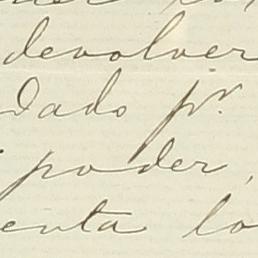 devolver
dado pr.
poder,
enta lo